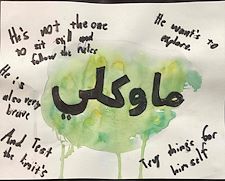 He's not the one
to sit still and
follow the rules
He want's to
explore.
ماوكلي
He is
also very
brave
And Test
the limit's
Try things for
himself